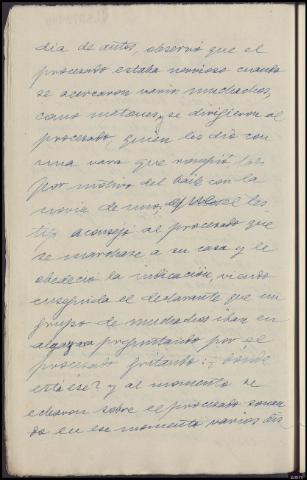 dia de autos, observó que el
procesado estaba nervioso cuando
se acercaron varios muchachos,
como matones, se dirigieron al
procesado, quien les dió con
una vara que rompió
por motivo del baile con la
novia de uno, el les
aconsejó al procesado que
se marchase a su casa y le
obedeció la indicación, viendo
enseguida el declarante que un
grupo de muchachos iban en
algazara preguntando por el
procesado gritando: ¿donde
esta ese? y al momento se
echaron sobre el procesado sonan
do en ese momento varios